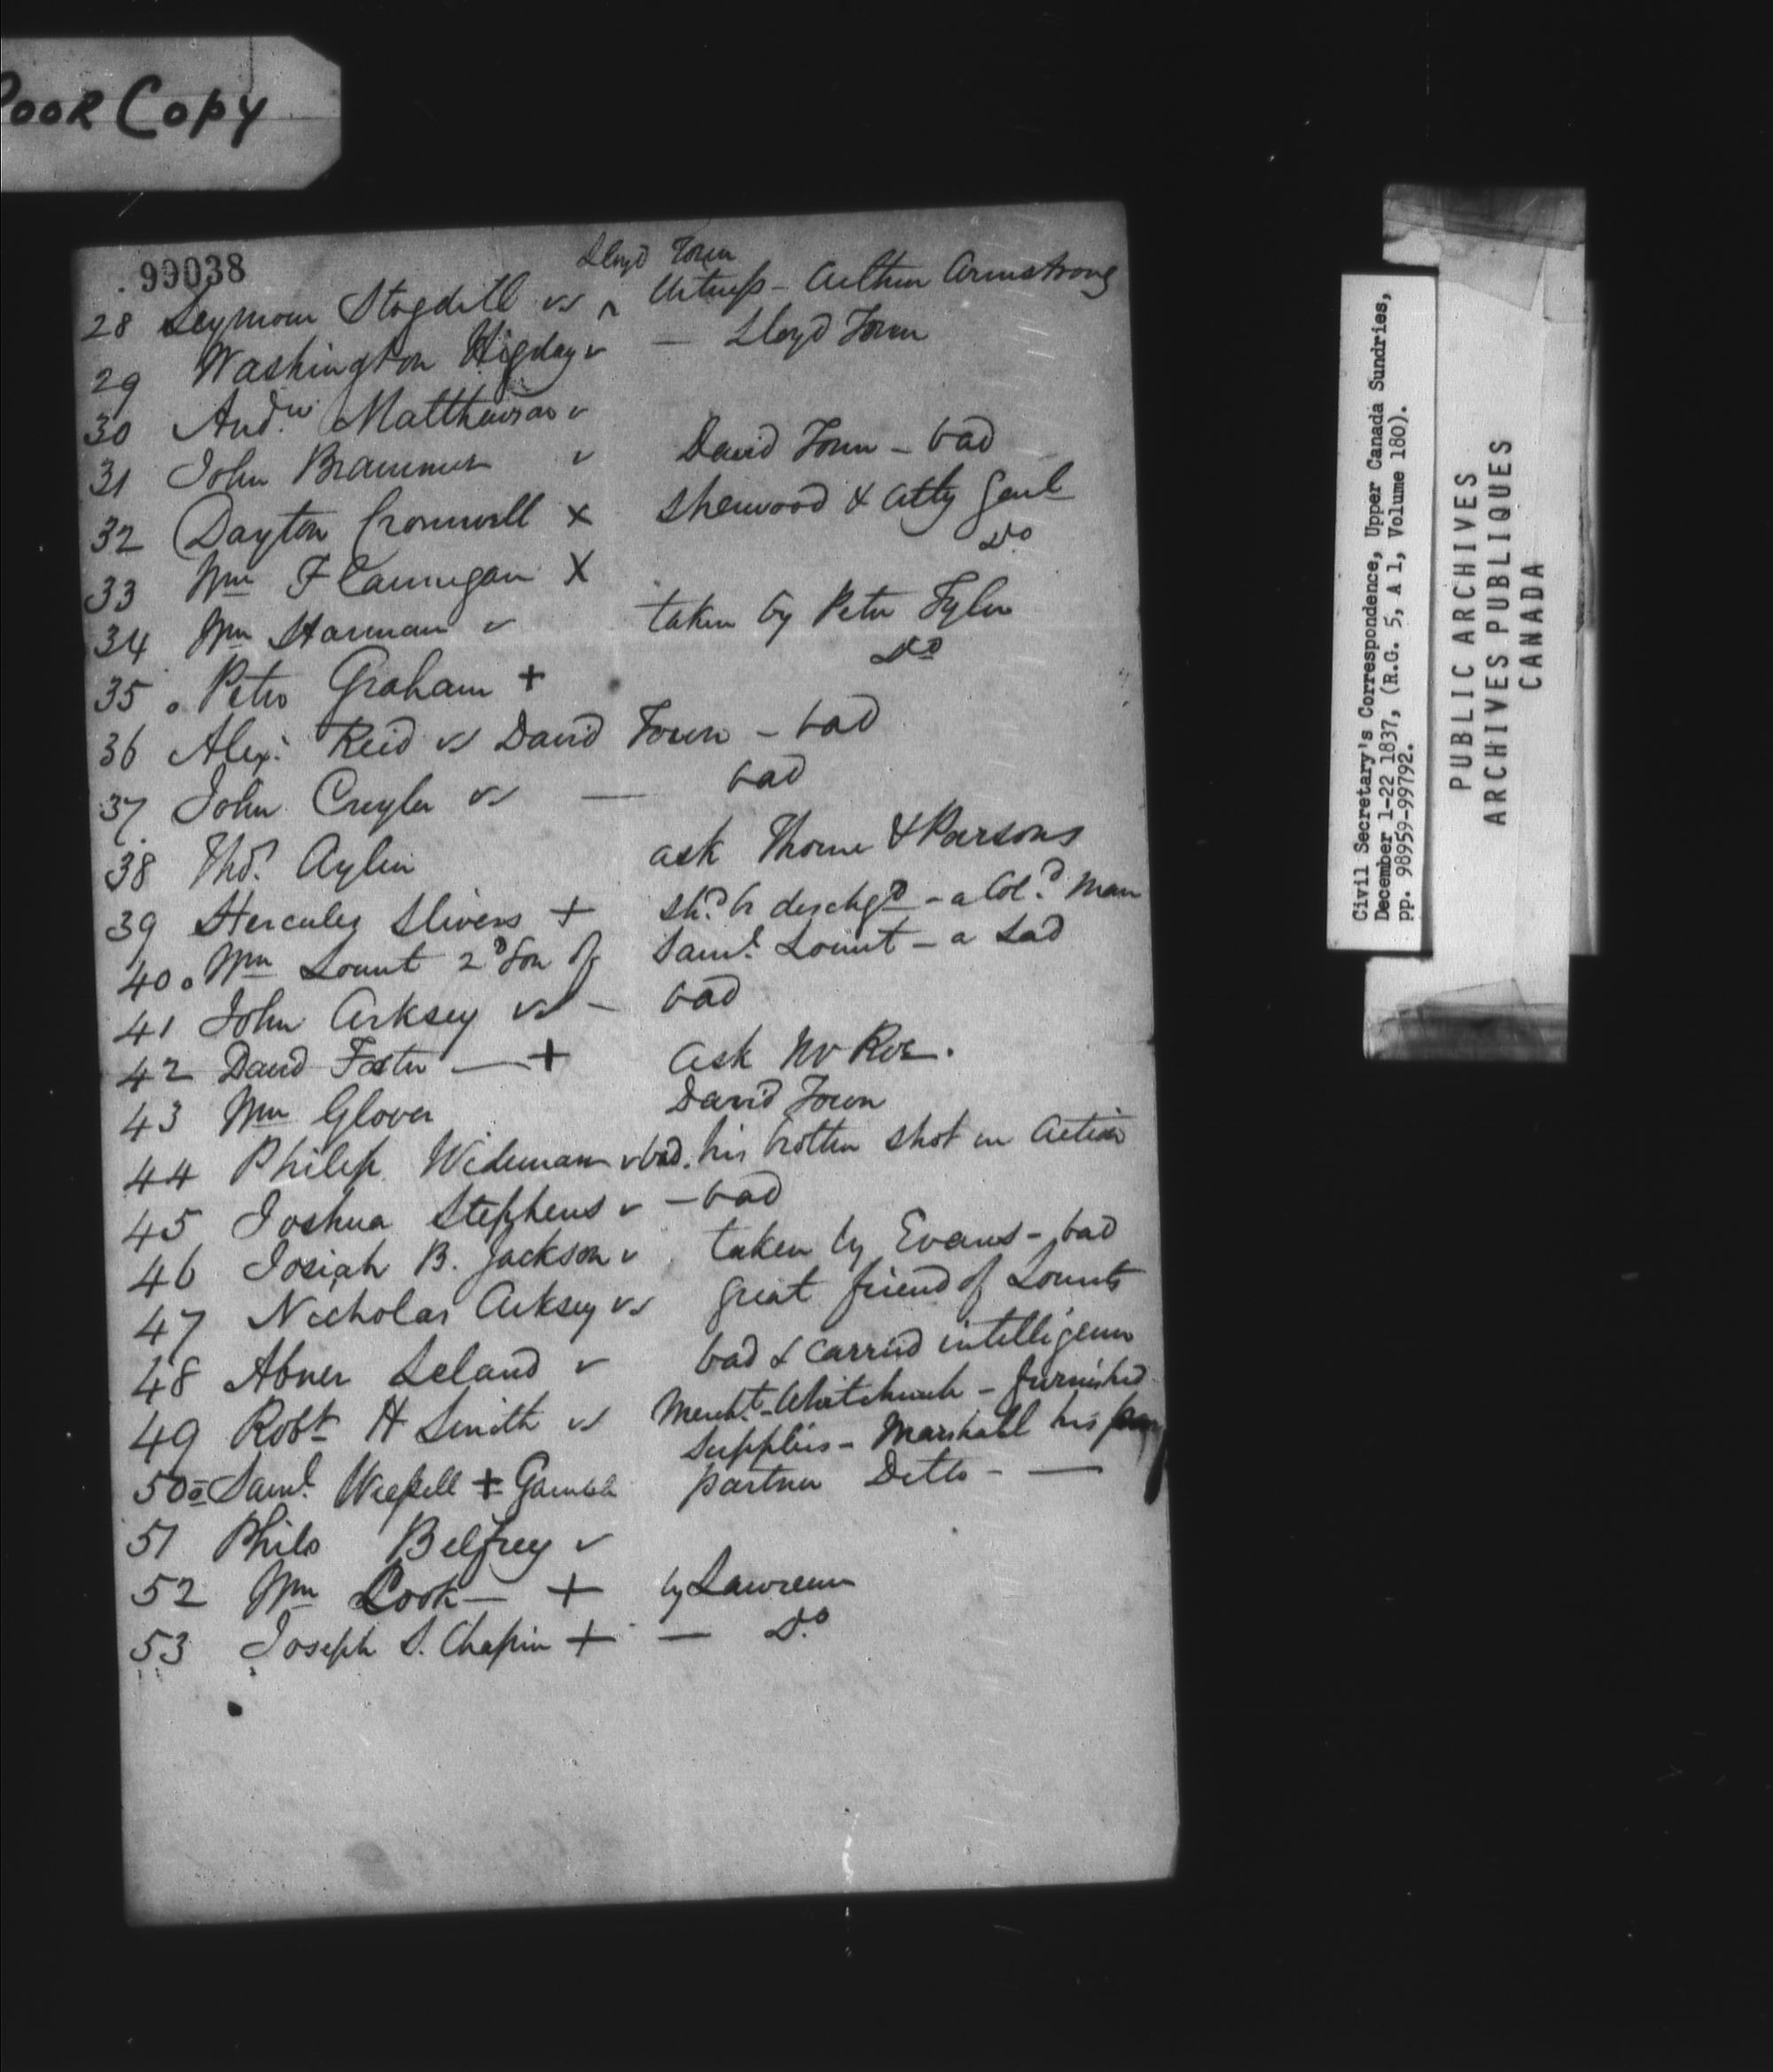 Poor Copy
99038
Lloyd Town
28 Seymour Stogdill vs ^ Witness - Arthur Armstrong
29 Washington Higday v — Lloyd Town
30 Andw. Matthewson v
31 John Brammer v David Town - bad
32 Dayton Cromwell X Sherwood & Atty Genl
33 Wm Flannigan X Do
34 Wm Harman v taken by Peter Tyler
35 . Peter Graham + Do
36 Alexr. Reid vs David Town - bad
37 John Cuyler vs — bad
38 Thos. Aylin ask Thorne & Parsons
39 Hercules Slivers + shd. be deschgd - a Cold. Man
40 . Wm Lount 2d Son of Saml. Lount - a Lad
41 John Arksey vs - bad
42 David Foster — + ask Mr Roe.
43 Wm Glover David Town
44 Philip Wideman v bad. his brother shot in Action
45 Joshua Stephens v - bad
46 Josiah B. Jackson v taken by Evans - bad
47 Nicholas Arksey vs great friend of Lounts
48 Abner Leland v bad & carried intelligence
49 Robt H Smith vs Mercht - Whitchurch - furnished
supplies - Marshall his
50 Saml. + Gamble partner Ditto - —
51 Philo Belfrey v
52 Wm Cook — + by Lawrence
53 Joseph S. Chapin + — Do.
Civil Secretary's Correspondence, Upper Canada Sundries,
December 1-22 1837, (R.G. 5, A 1, Volume 180).
pp. 98959-99792.
PUBLIC ARCHIVES
ARCHIVES PUBLIQUES
CANADA